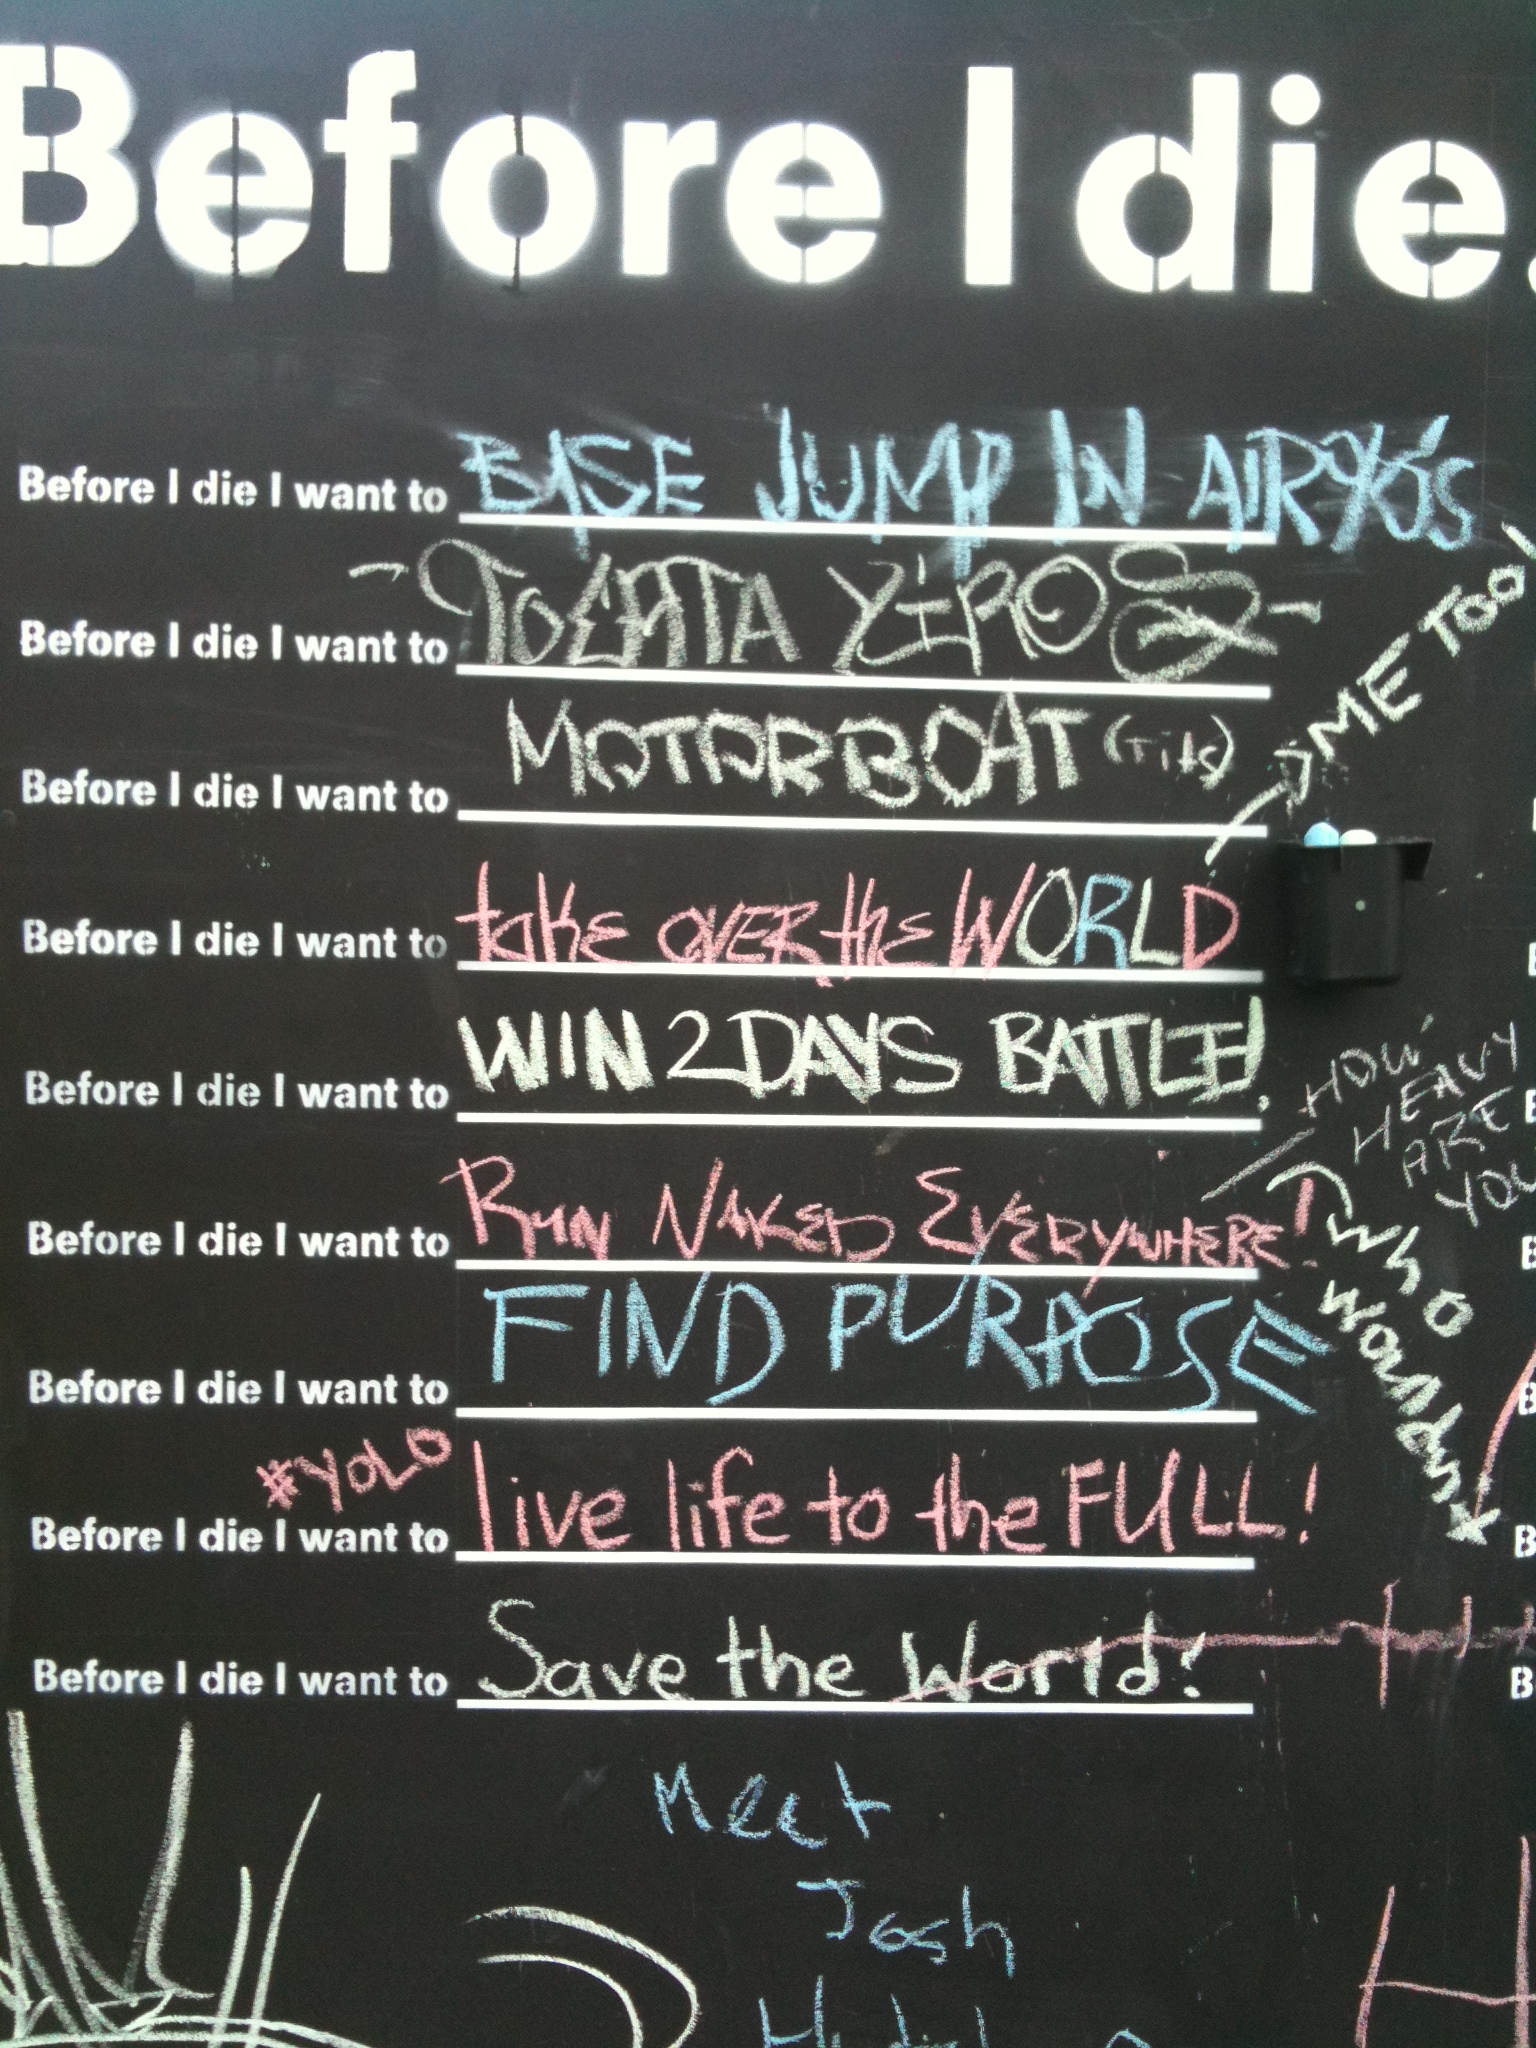 Before I die
Before I die I want to BASE JUMP IN AIR 90's
Before I die I want to
Before I die I want to MOTORBOAT (Tits)
ME TOO
Before I die I want to take OVER the WORLD
Before I die I want to WIN 2 DAYS BATTLE!
HOW
HEAVY
ARE
YOU
Before I die I want to RUN NAKED EVERYWHERE!
WhO
WORNDERS
Before I die I want to FIND PURPOSE
#YOLO
Before I die I want to live life to the FULL!
Before I die I want to Save the World!
Meet
Josh